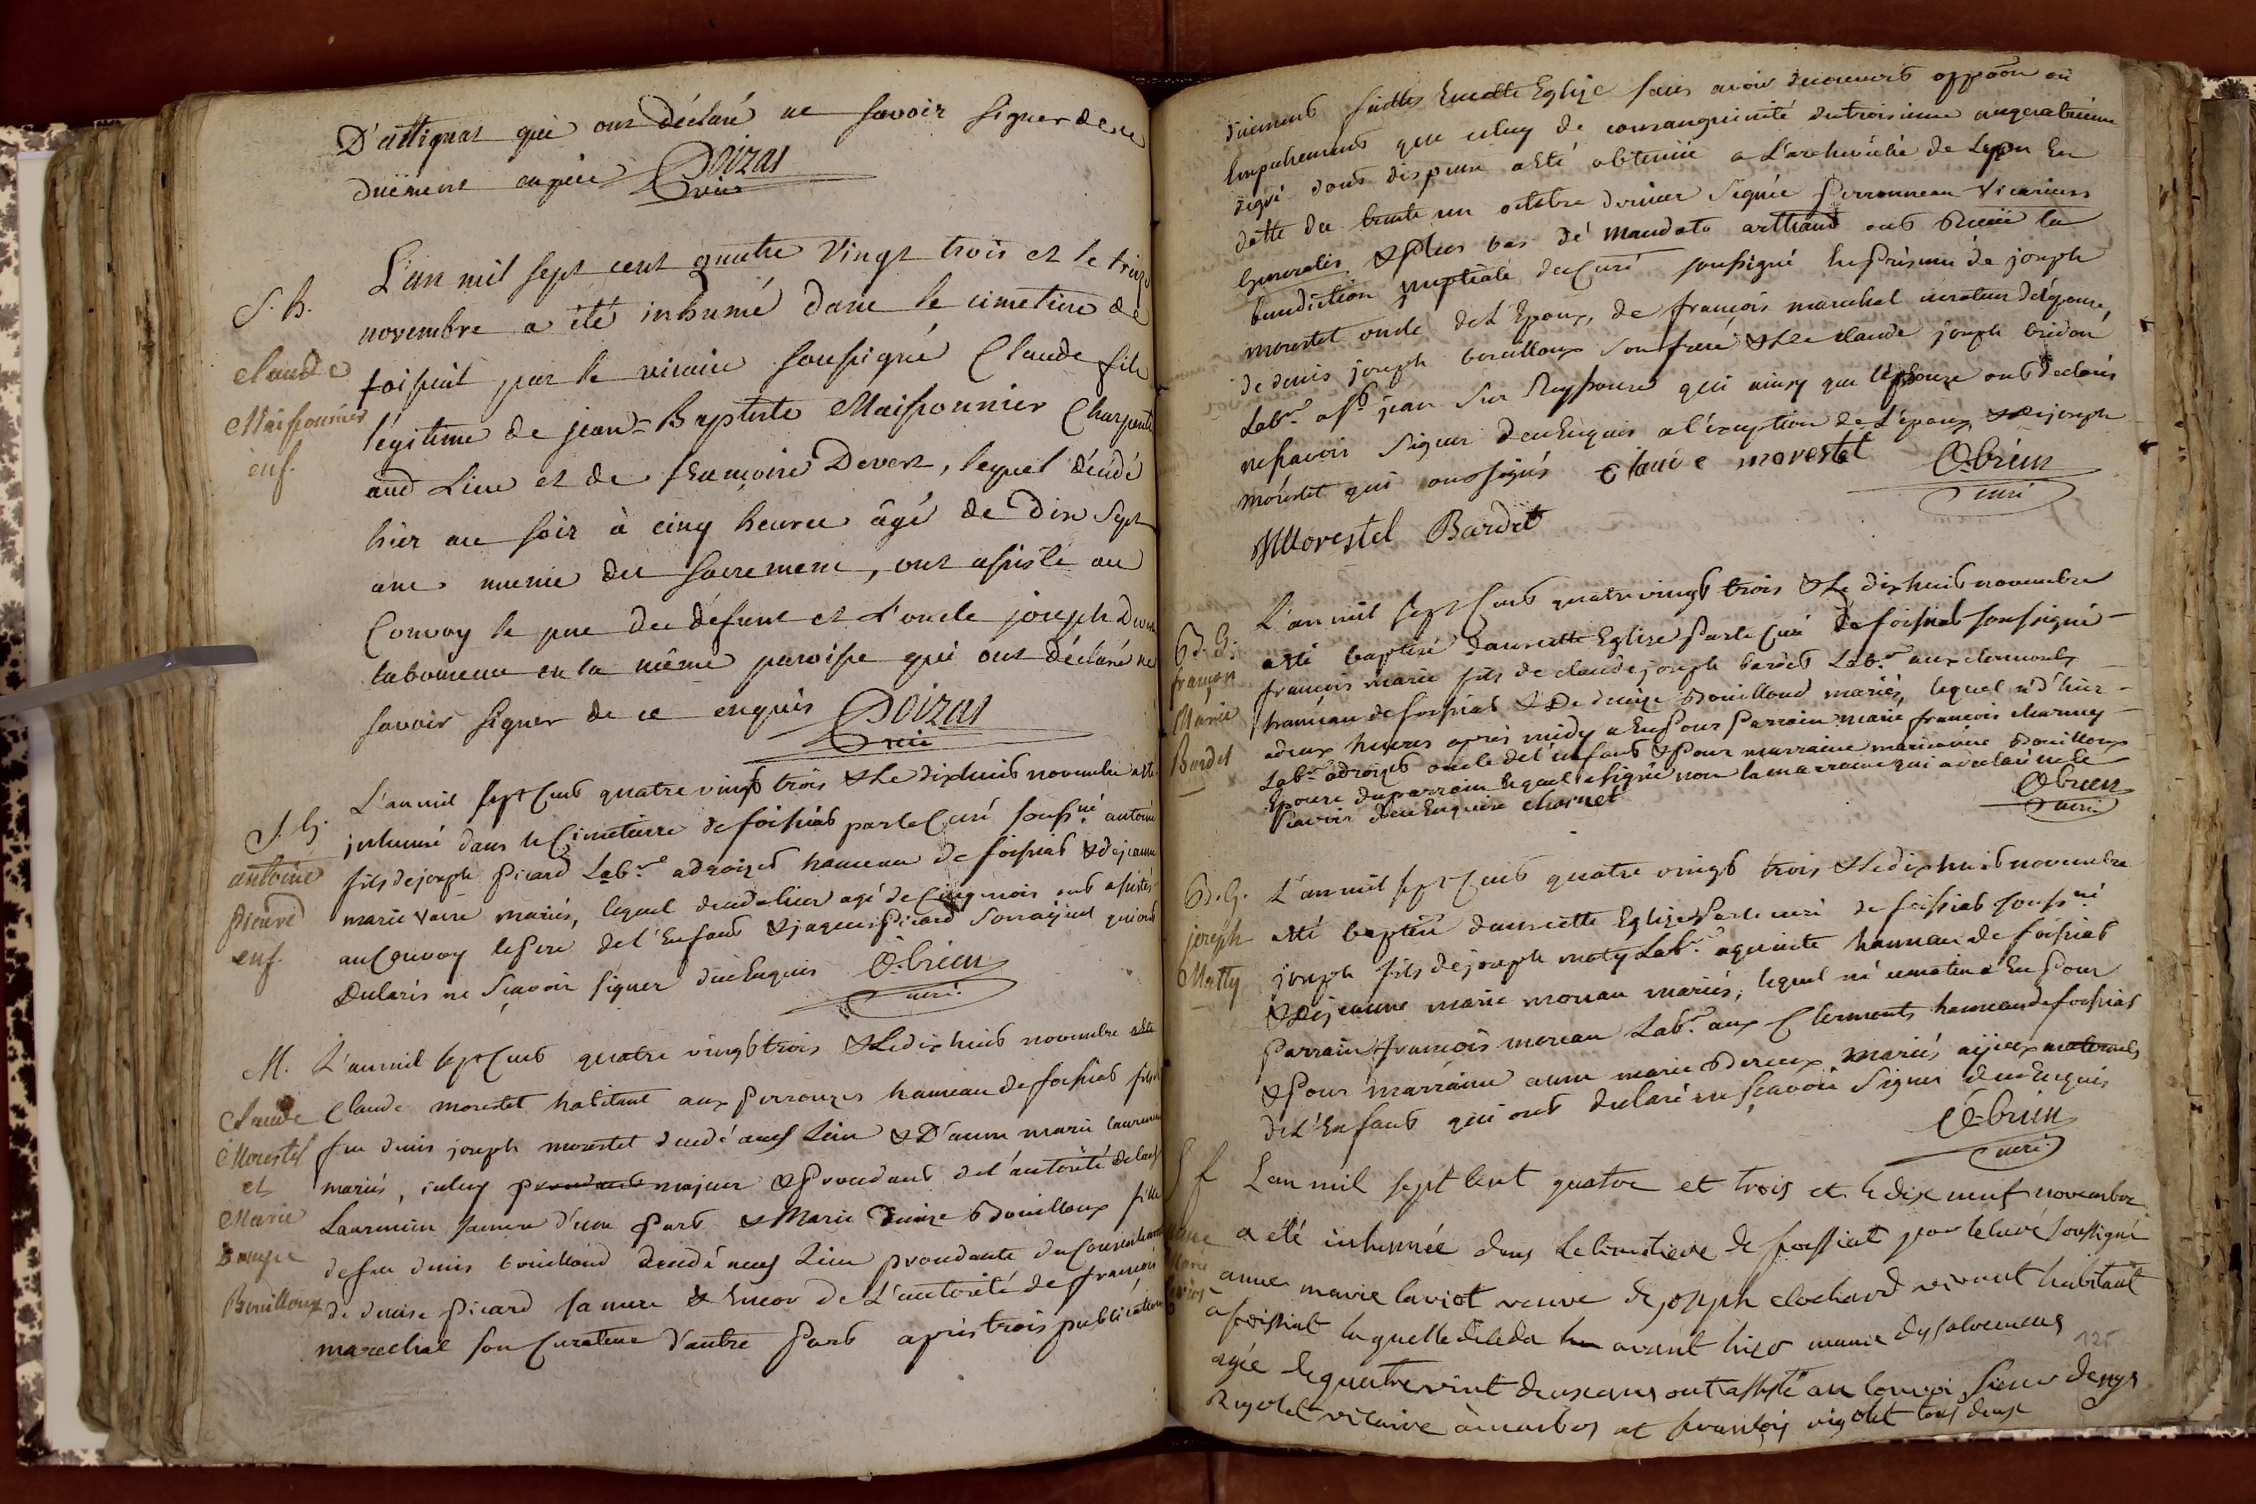 D'attignat qui ont déclaré ne savoir signer de ce
duëment enquis Poizat
vic.
S. h.
claude
Maissonnier
enf.
L'an mil sept cent quatre vingt trois et le treize
novembre a été inhumé dans le cimetière de
foissiat par le vicaire soussigné Claude fils
légitime de jean-Baptiste Maissonnier Charpent
aud Lieu et de françoise Devert, lequel décédé
hier au soir à cinq heures âgé de Dix Sept
ans munie des sacrement, ont assisté au
Convoy le pere du défunt et l'oncle joseph
laboureur en la même paroisse qui ont déclaré ne
savoir signer de ce enquis Poizat
vic
S. G.
antoine
picard
enf.
L'an mil sept Cent quatre vingt trois & Le dixhuit novembre a été
inhumé dans le Cimetierre de foissiat par le Curé souss.né antoine
fils de joseph picard Lab.r adroizet hameau de foissiat & de jeanne
marie mariés, lequel decedé hier agé de Cinq mois ont assistés
au Convoy le Pere de l'Enfant & jaques Picard son ayeul qui ont
Declarés ne Sçavoir signer duëEnquis Obrien
curé.
M.
Claude
Morestel
et
Marie
Denise
Bouilloux
L'an mil sept Cent quatre vingt trois & Le dix huit novembre a été
Claude morestet habitant aux Perrouzes hameau de foissiat fils de
feu denis joseph morestet decedé aud Lieu & D'anne marie
mariés, iceluy procedant majeur & Procedant de l'autorité de lad
sa mere d'une Part & Marie Denise Bouilloux fille
de feu denis bouilloud decedé aud Lieu procedante du Consentement
de denise Picard sa mere & Encor de L'autorité de francois
marechal son Curateur d'autre Part apres trois publications
duement faittes En cette Eglise sans avoir decouvert oppoôn ou
Empechement que celuy de consanguinité du troisieme au quatrieme
degré dont dispense a été obtenüe a L'archevêché de Lyon En
datte du trente un octobre dernier Signée Perronneau Vicarius
Generalis & Plus bas de mandato arthaud ont Recüe la
benediction nuptiale du Curé soussigné En Présence de joseph
morestet oncle de L'Epoux, de françois marechal curateur de l'épouse,
de denis joseph bouilloux son frere & de claude joseph bridon
Lab.r a S.t jean Sur Reyssouze qui ainsy que l'épouse ont declarés
ne sçavoir Signer deceEnquis a l'éxeption de L'époux, & de joseph
morestet qui ont signés Claude morestet Obrien
curé
Morestel Bardet
B. d. G.
françois
Marie
Bardet
L'an mil sept Cent quatre vingt trois & Le dix huit novembre
a été baptisé dans cette Eglise Par le Curé de foissiat soussigné
francois marie fils de claude joseph bardet Lab.r aux clermonts
hameau de foissiat & De denise Bouilloud mariés, lequel né d'hier
a deux heures apres midy a Eu Pour Parrain marie francois charnay
Lab.r adroizet oncle de l'enfant & Pour marraine Bouilloux
Epouse du parrain lequel a signé non la marraine qui a declaré ne le
Scavoir deceEnquise charnet
Obrien
curé.
B. d. G.
joseph
Matty
L'an mil sept Cent quatre vingt trois & Le dix huit novembre
a été baptisé dans cette Eglise Par le curé de foissiat souss.né
joseph fils de joseph maty Lab.r a hameau de foissiat
& De jeanne marie moreau mariés, lequel né ce matin a Eu Pour
Parrain françois moreau Lab.r aux Clermonts hameau de foissiat
& Pour marraine anne marie Bereux mariés ayieux maternels
de L'Enfant qui ont declaré ne sçavoir Signer deceEnquis
Obrien
curé
S f
L'an mil sept Cent quatre et trois et le dix neuf novembre
a été inhumée dans le Cimetiere de foissiat par le Curé soussigné
anne marie laviot veuve de joseph clochard vivant habitant
a foissiat laquelle deceda avant hier munie dys sacremens
agée de quatre vint deux ans ont assisté au convoi sieur denys
Rigolet vicaire a marboz et françois rigolet tous deux
125